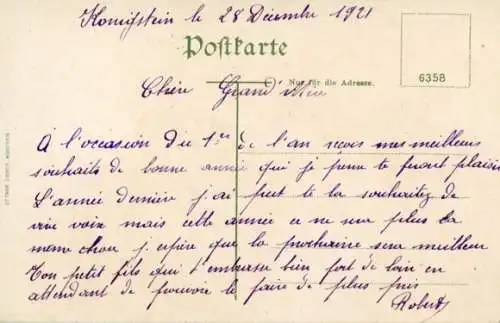 Konigstein le 28 Décembre 1921
Postkarte
Nur für die Adresse.
6358
Chère Grand' Mère
À l'occasion du 1er de l'an reçois mes meilleurs
souhaits de bonne année qui je pense te feront plaisir
L'année dernière j'ai put te la souhaitez de
vive voix mais cette année ce ne seu plus la
meme chose j'espère que la prochaine sera meilleur
Ton petit fils qui t'embrasse bien fort de loin en
attendant de pouvoir le faire de plus près
Robert